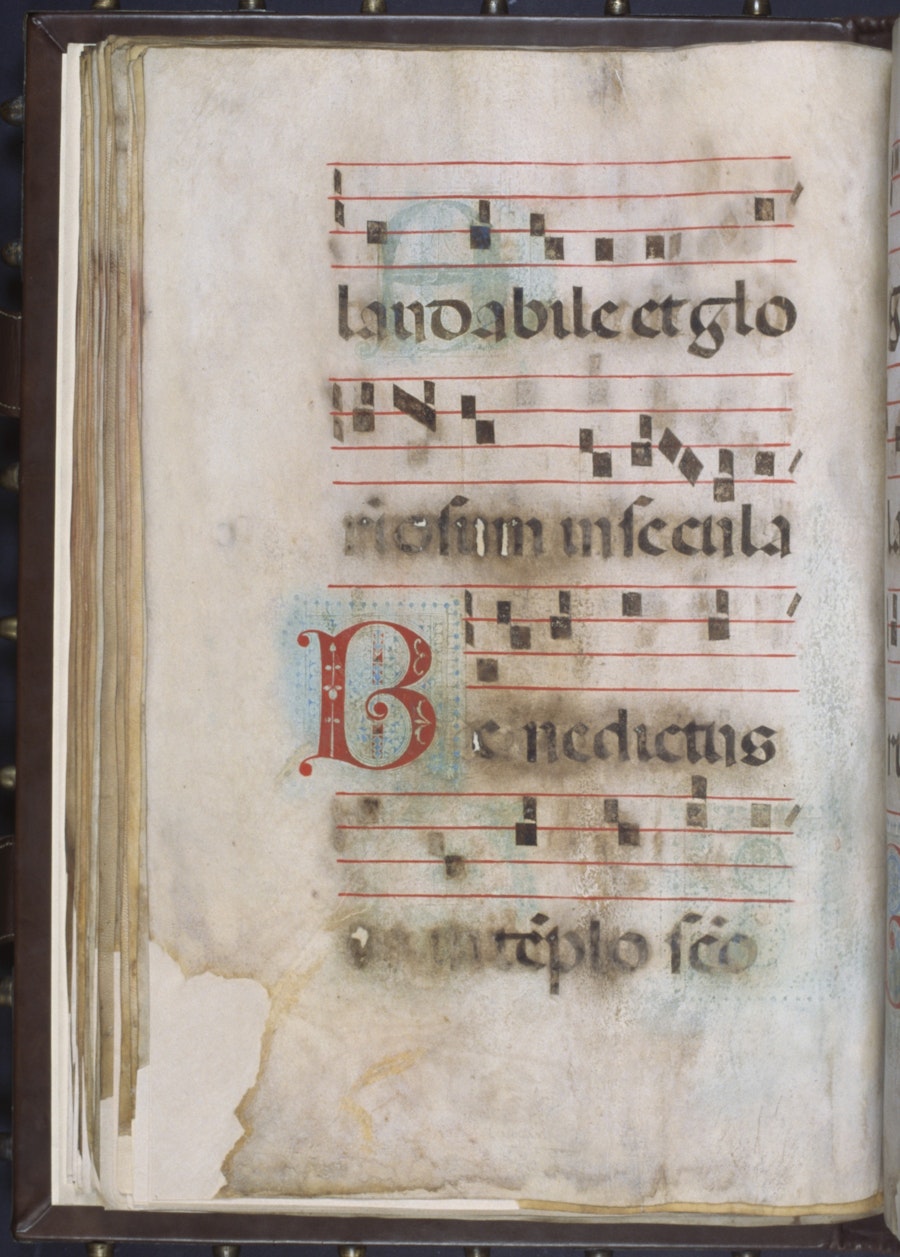 laudabile et glo
riosum in secula
Benedictus
in tēplo scō